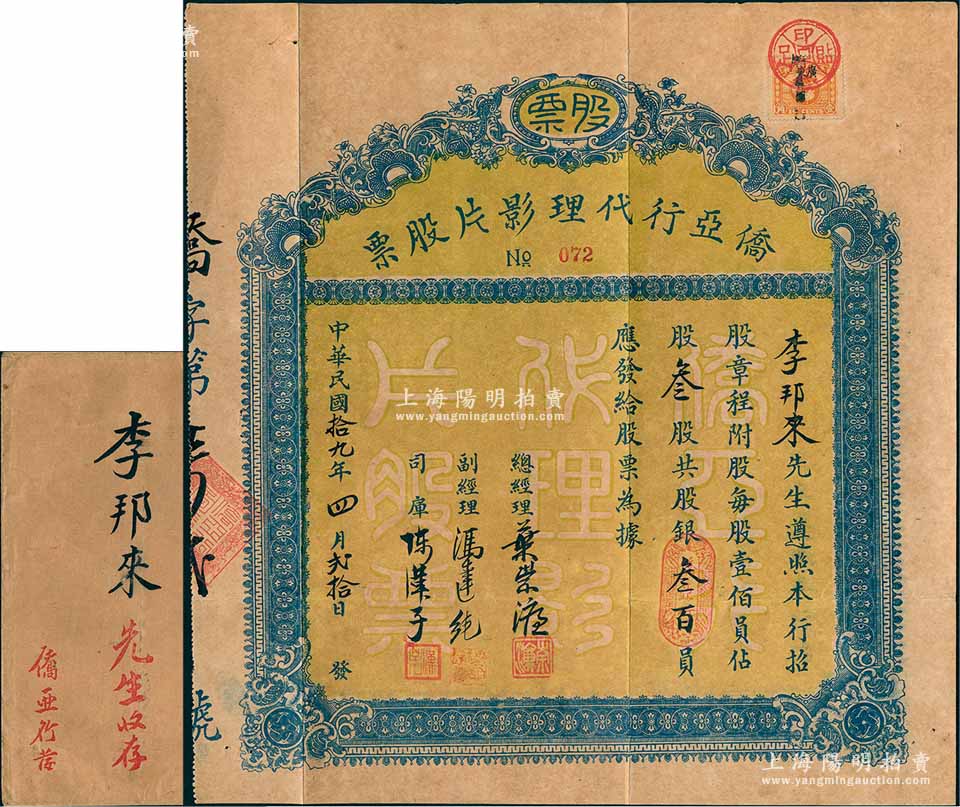 股票
僑亞行代理影片股票
No 072
李邦來先生遵照本行招
股章程附股每股壹佰員佔
股叁股共股銀叁百員
應發給股票為據
總經理 葉崇滙
副經理 馮達純
司庫 陈漢子
中華民國拾九年四月弍拾日發
僑亞行代理影片股票
僑字第
號
印花貼足
李邦來先生收存
僑亞行
上海陽明拍賣
www.yangmingauction.com
上海陽明拍賣
www.yangmingauction.com